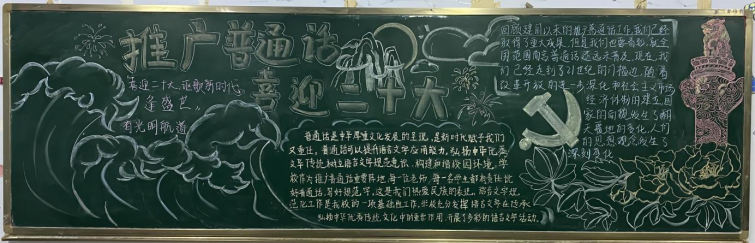 推广普通话
喜迎二十大
喜迎二十大,讴歌新时代
逢盛世
有光明航道
普通话是中华厚重文化发展的呈现,是新时代赋予我们
又重任,普通话可以提升语言文字应用能力,弘扬中华优
文字传统,树立语言文字规范意识,构建和谐校园环境,学
校作为推广普通话重要阵地,每一位老师,每一名学生都有责任比
好普通话,写好规范字,这是我们热爱民族的表现。语言文字规
范化工作是我校的一项基础性工作,学校充分发挥语言文字在传承
弘扬中华优秀传统文化中的重要作用,开展了多彩的语言文字活动。
回顾建国以来的推广普通话工作,我们已经
取得了重大成果,但我们也要看到,就全
范围内而言普通话还远未普及,现在,我
们已经走到了21世纪的门槛边,随着
改革开放的进一步深化和社会主义市场
经济体制的建立,国
家的面貌发生了翻
天覆地的变化,人们
的思想观念发生了
深刻变化